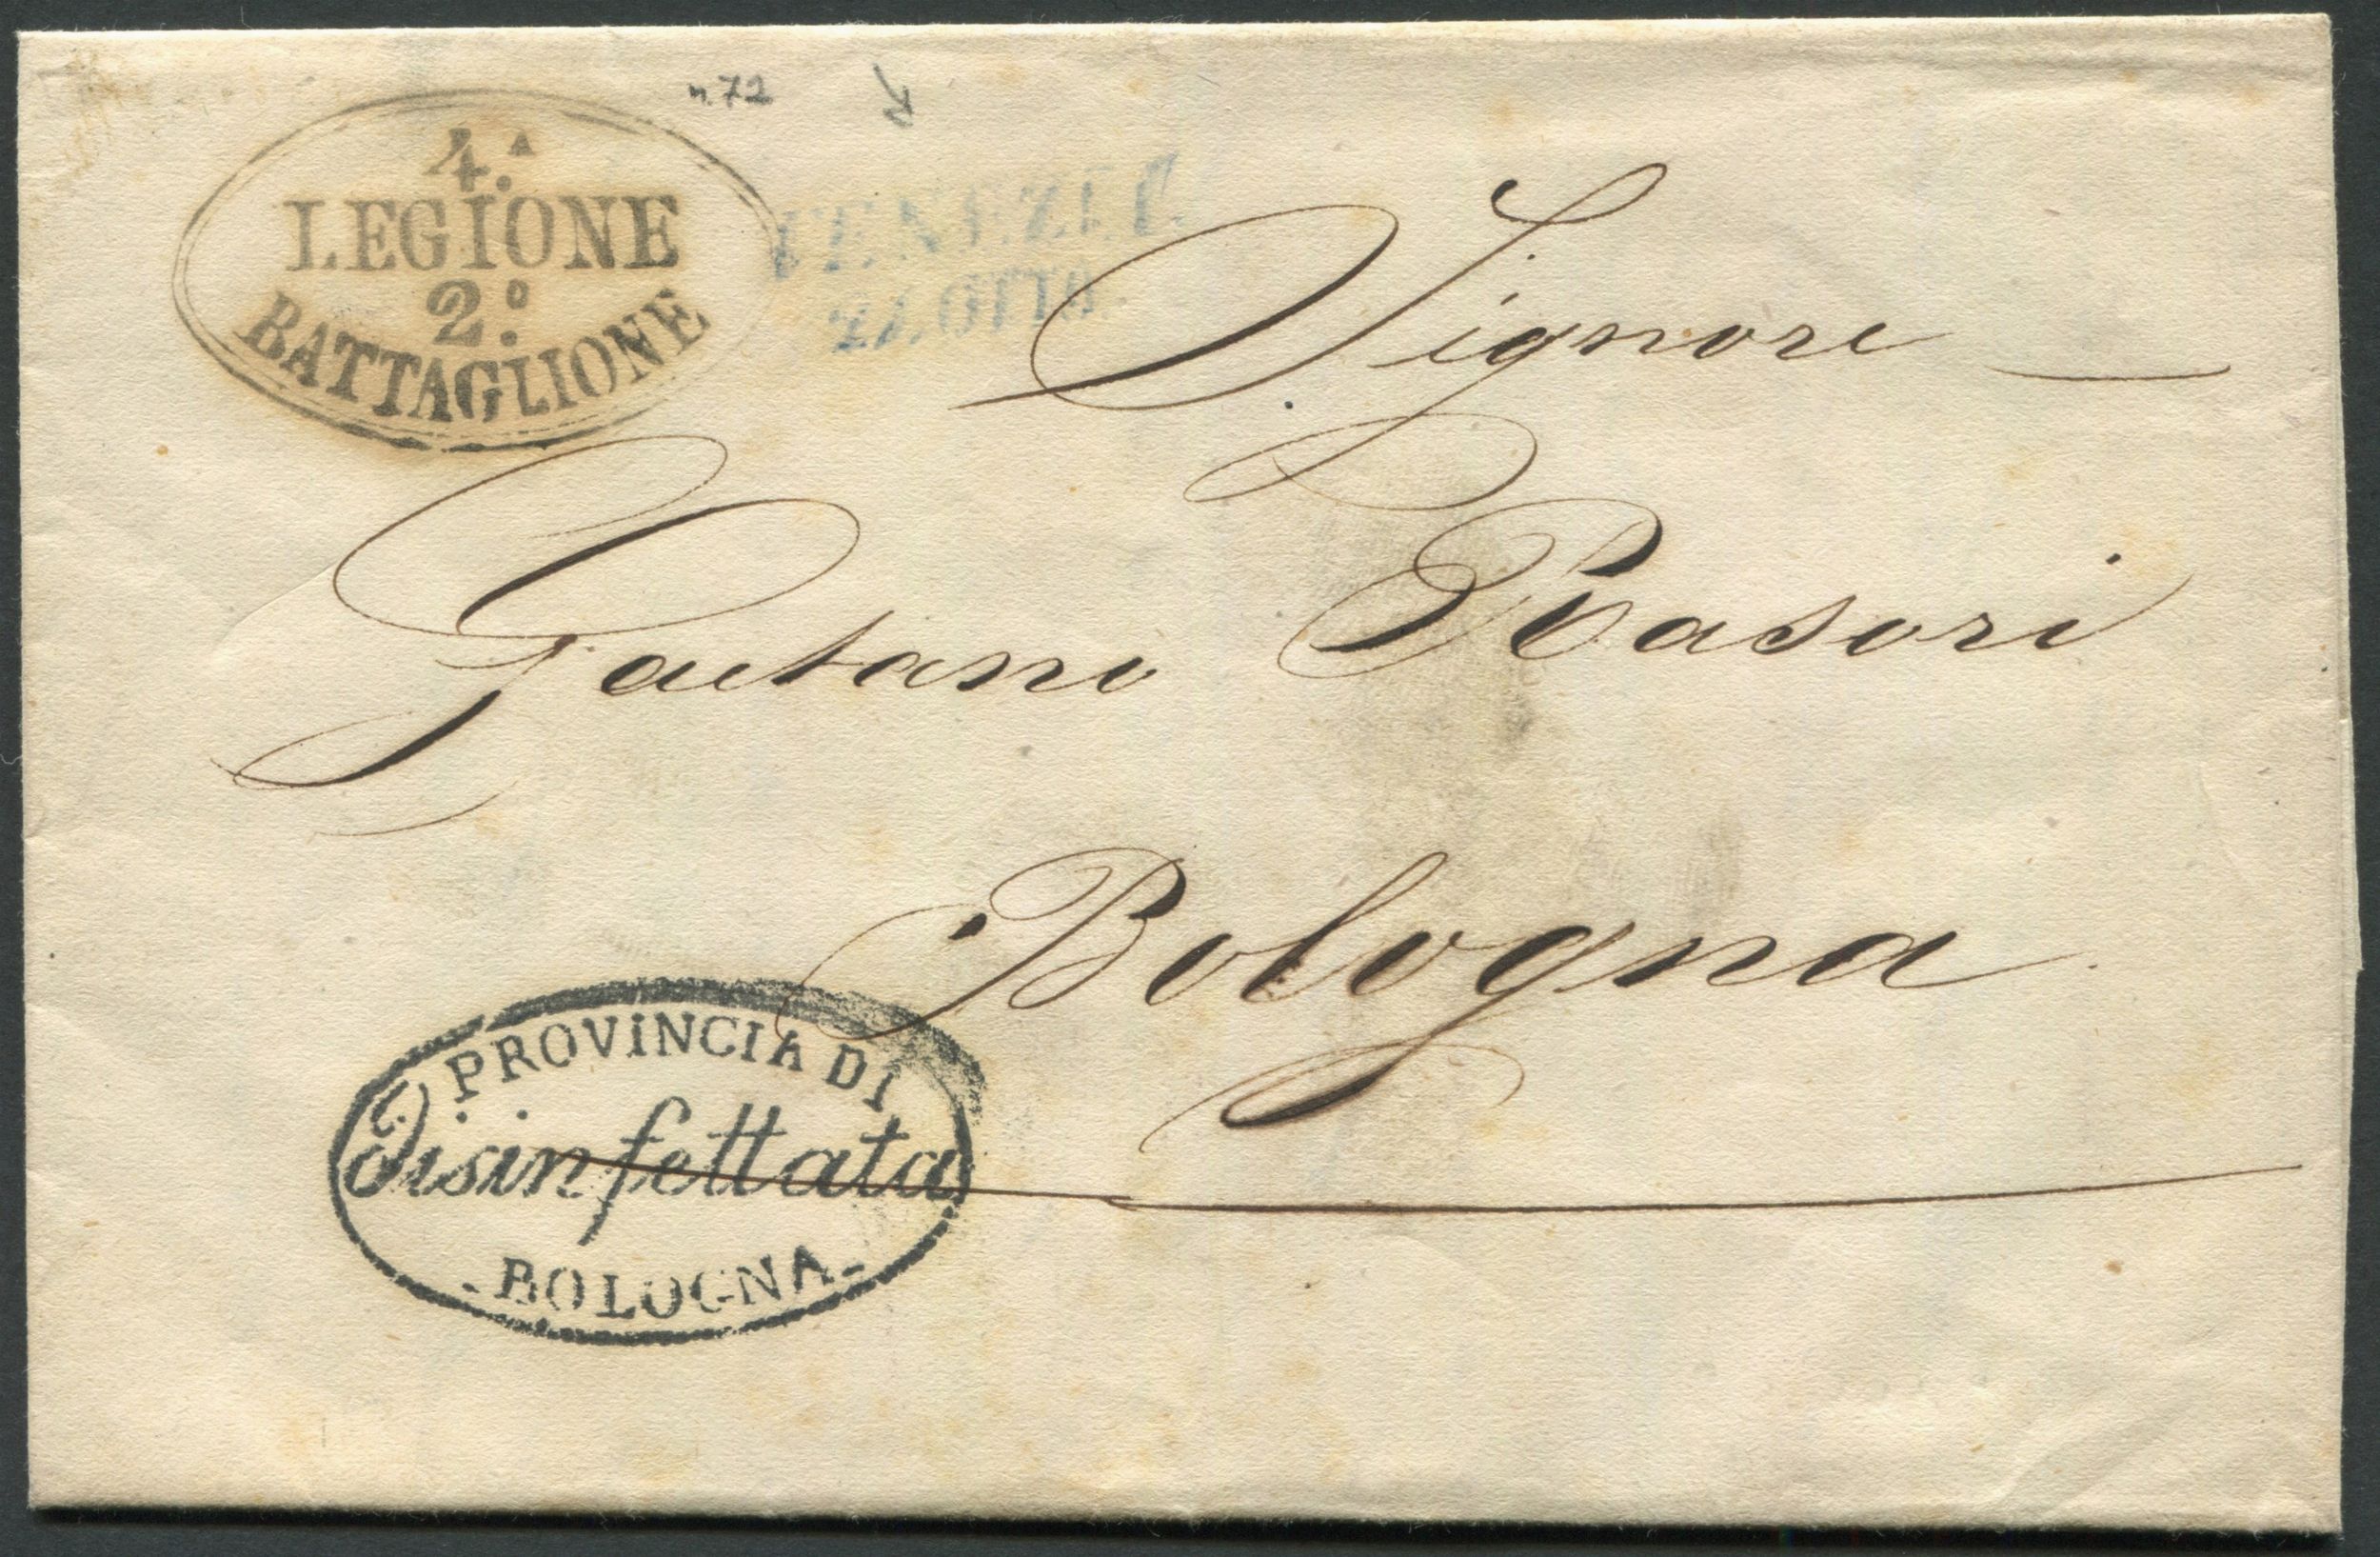 n.72
4.ᴬ
LEGIONE
2.º
BATTAGLIONE
VENEZIA
OTTO
Signore
Gaetano Rasori
Bologna
PROVINCIA DI
disinfettata
- BOLOGNA -